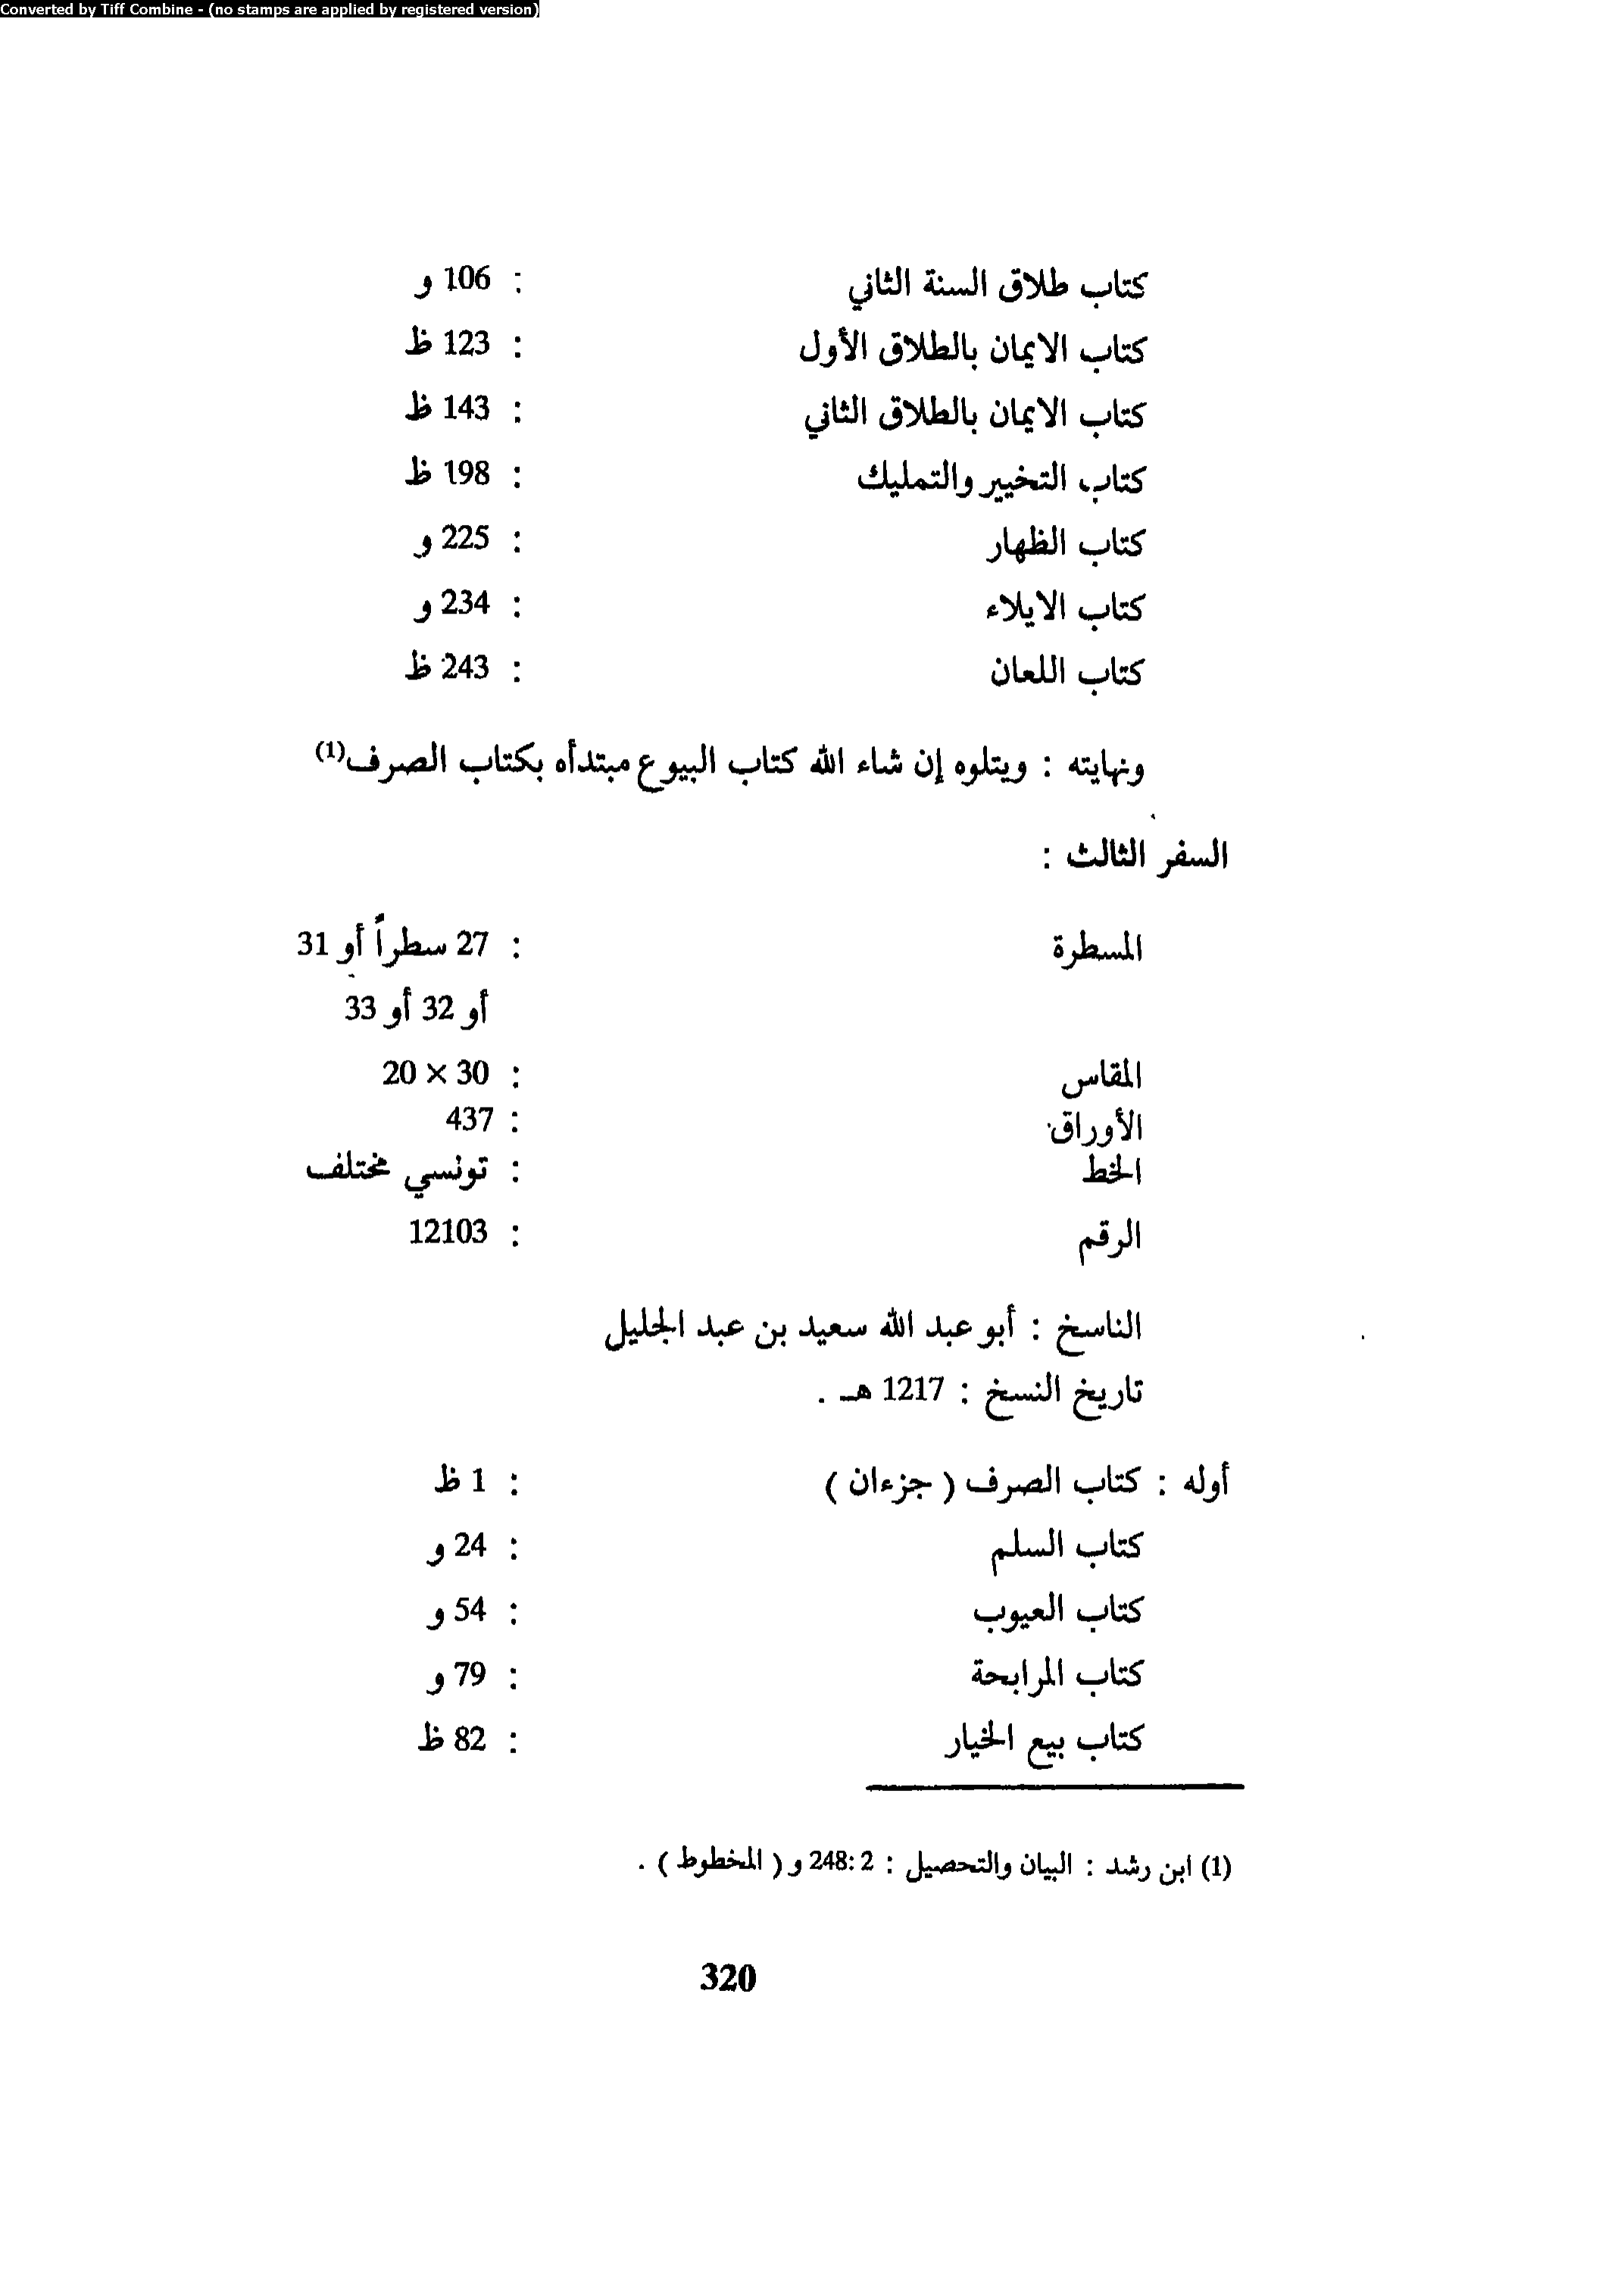 Converted by Tiff Combine - (no stamps are applied by registered version)
كتاب طلاق السنة الثاني : 106 و
كتاب الايمان بالطلاق الأول : 123 ظ
كتاب الايمان بالطلاق الثاني : 143 ظ
كتاب التخيير والتمليك : 198 ظ
كتاب الظهار : 225 و
كتاب الايلاء : 234 و
كتاب اللعان : 243 ظ
ونهايته : ويتلوه إن شاء الله كتاب البيوع مبتدأه بكتاب الصرف(1)
السفر الثالث :
المسطرة : 27 سطراً أو 31
أو 32 أو 33
المقاس : 30 × 20
الأوراق : 437
الخط : تونسي مختلف
الرقم : 12103
الناسخ : أبو عبد الله سعيد بن عبد الجليل
تاريخ النسخ : 1217 هـ .
أوله : كتاب الصرف ( جزءان ) : 1 ظ
كتاب السلم : 24 و
كتاب العيوب : 54 و
كتاب المرابحة : 79 و
كتاب بيع الخيار : 82 ظ
(1) ابن رشد : البيان والتحصيل : 2 :248 و ( المخطوط ) .
320